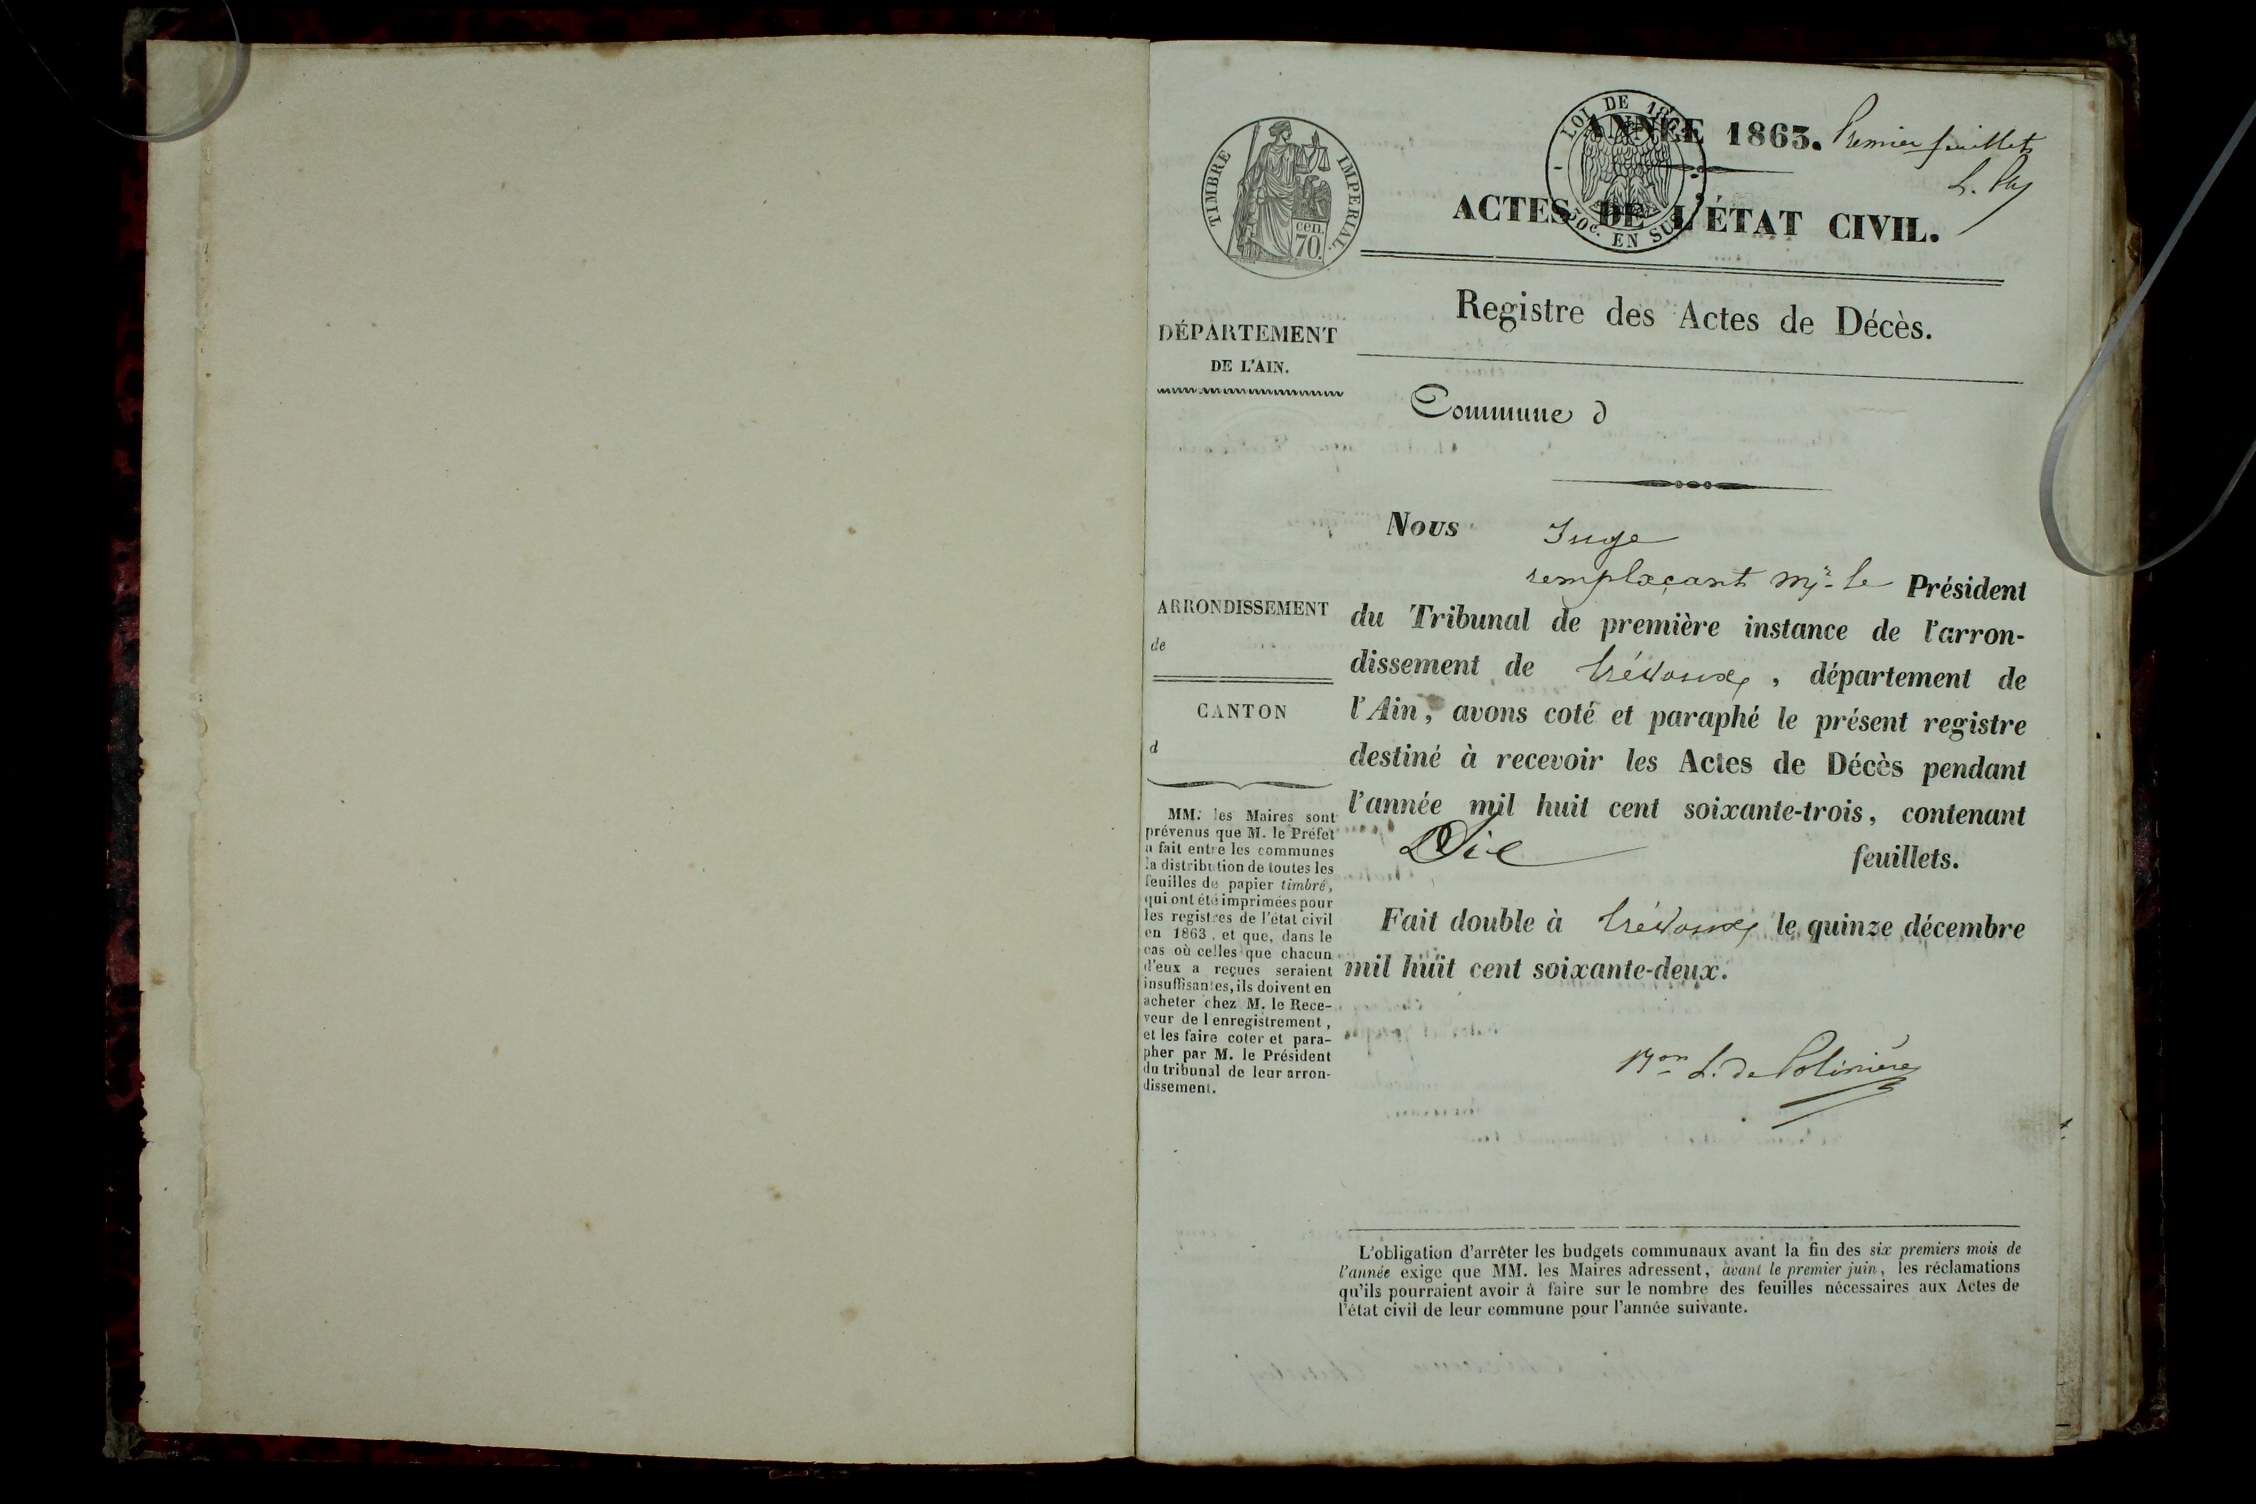 TIMBRE IMPERIAL.
cen. 70.
LOI DE 1862
30c. EN SUS
ANNÉE 1863.
Premier feuillet
ACTES DE L'ÉTAT CIVIL.
Registre des Actes de Décès.
Commune d
DÉPARTEMENT
DE L'AIN.
ARRONDISSEMENT
de
CANTON
d
MM. les Maires sont
prévenus que M. le Préfet
a fait entre les communes
la distribution de toutes les
feuilles de papier timbré,
qui ont été imprimées pour
les registres de l'état civil
en 1863, et que, dans le
cas où celles que chacun
d'eux a reçues seraient
insuffisantes, ils doivent en
acheter chez M. le Rece-
veur de l'enregistrement,
et les faire coter et para-
pher par M. le Président
du tribunal de leur arron-
dissement.
Nous Juge
remplaçant Mr le Président
du Tribunal de première instance de l'arron-
dissement de Trévoux, département de
l'Ain, avons coté et paraphé le présent registre
destiné à recevoir les Actes de Décès pendant
l'année mil huit cent soixante-trois, contenant
feuillets.
Fait double à Trévoux le quinze décembre
mil huit cent soixante-deux.
Bon L. de Polinière
L'obligation d'arrêter les budgets communaux avant la fin des six premiers mois de
l'année exige que MM. les Maires adressent, avant le premier juin, les réclamations
qu'ils pourraient avoir à faire sur le nombre des feuilles nécessaires aux Actes de
l'état civil de leur commune pour l'année suivante.